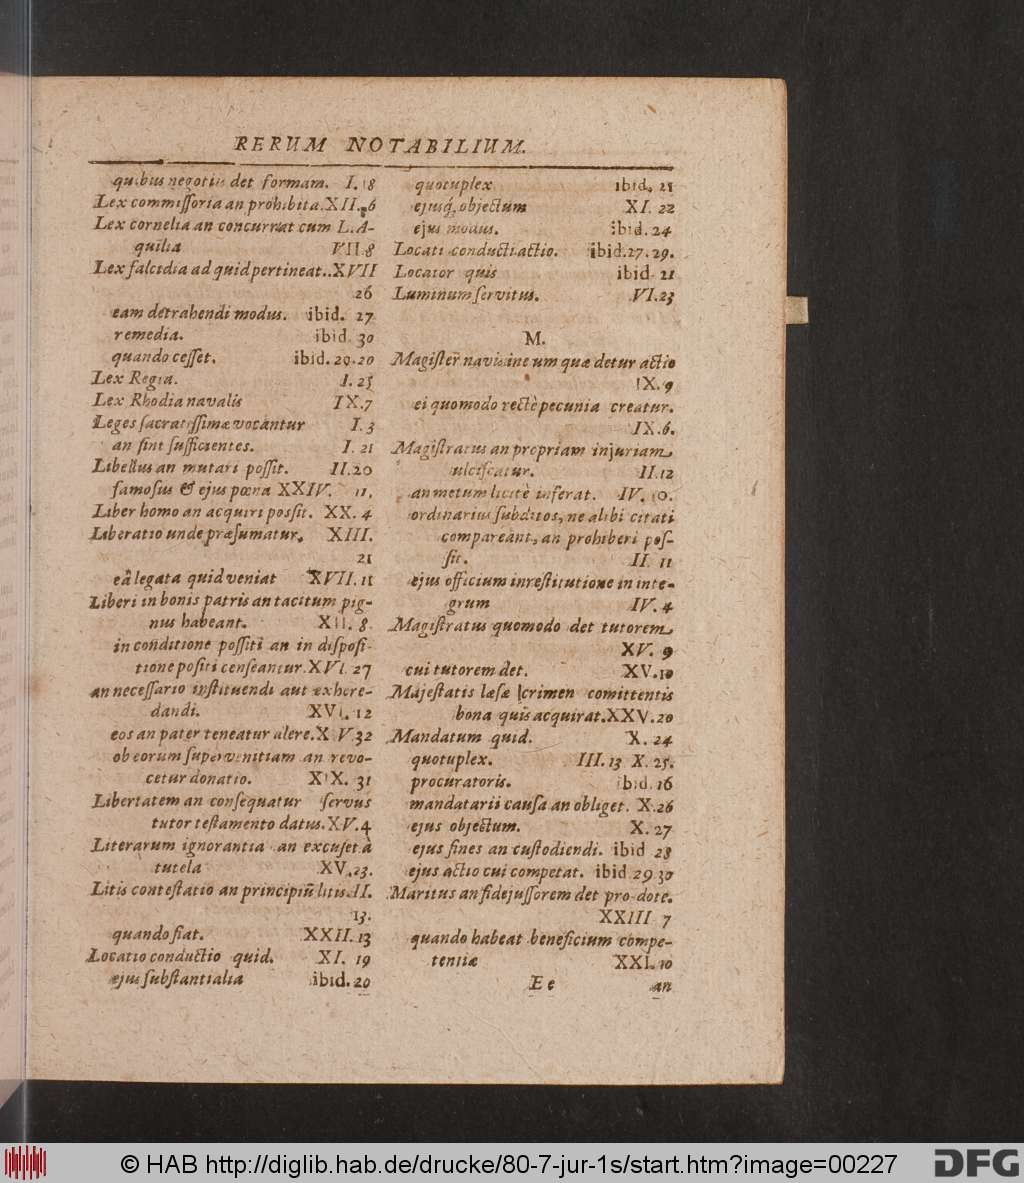 RERUM NOTABILIUM.
quibus negotiis det formam. I. 18
Lex commissoria an prohibita. XII. 6
Lex cornelia an concurrat cum L. A-
quilia VII 8
Lex falcidia ad quid pertineat.. XVII
26
eam detrahendi modus. ibid. 27
remedia. ibid. 30
quando cesset. ibid. 29.20
Lex Regia. I. 25
Lex Rhodia navalis IX.7
Leges sacratissimæ vocantur I. 3
an sint sufficientes. I. 21
Libellus an mutari possit. II.20
famosus & ejus pœna XXIV. 11.
Liber homo an acquiri possit. XX. 4
Liberatio unde præsumatur. XIII.
21
eâ legata quid veniat XVII. 11
Liberi in bonis patris an tacitum pig-
nus habeant. XII. 8
in conditione positi an in disposi-
tione positi censeantur. XVI. 27
an necessario instituendi aut exhere-
dandi. XVI. 12
eos an pater teneatur alere. X V. 32
ob eorum supervenitiam an revo-
cetur donatio. XIX. 31
Libertatem an consequatur servus
tutor testamento datus. XV. 4
Literarum ignorantia an excuset à
tutela XV. 23.
Litis contestatio an principiũ litis. II.
13.
quando fiat. XXII. 13
Locatio conductio quid. XI. 19
ejus substantialia ibid. 20
quotuplex ibid. 21
ejusq́; objectum XI. 22
ejus modus. ibid. 24
Locati conducti actio. ibid.27.29.
Locator quis ibid. 21
Luminum servitus. VI.23
M.
Magister navis in eum quæ detur actio
IX. 9
ei quomodo rectè pecunia creatur.
IX.6.
Magistratus an propriam injuriam
ulciscatur. II.12
an metum licitè inferat. IV. 10.
ordinarius subditos, ne alibi citati
compareant, an prohiberi pos-
sit. II. 11
ejus officium in restitutione in inte-
grum IV. 4
Magistratus quomodo det tutorem
XV. 9
cui tutorem det. XV.10
Majestatis læsæ crimen comittentis
bona quis acquirat. XXV.20
Mandatum quid. X. 24
quotuplex. III. 13 X. 25.
procuratoris. ibid. 16
mandatarii causa an obliget. X.26
ejus objectum. X. 27
ejus fines an custodiendi. ibid 28
ejus actio cui competat. ibid. 29 30
Maritus an fidejussorem det pro dote.
XXIII 7
quando habeat beneficium compe-
tentiæ XXI. 10
E e an
© HAB http://diglib.hab.de/drucke/80-7-jur-1s/start.htm?image=00227
DFG